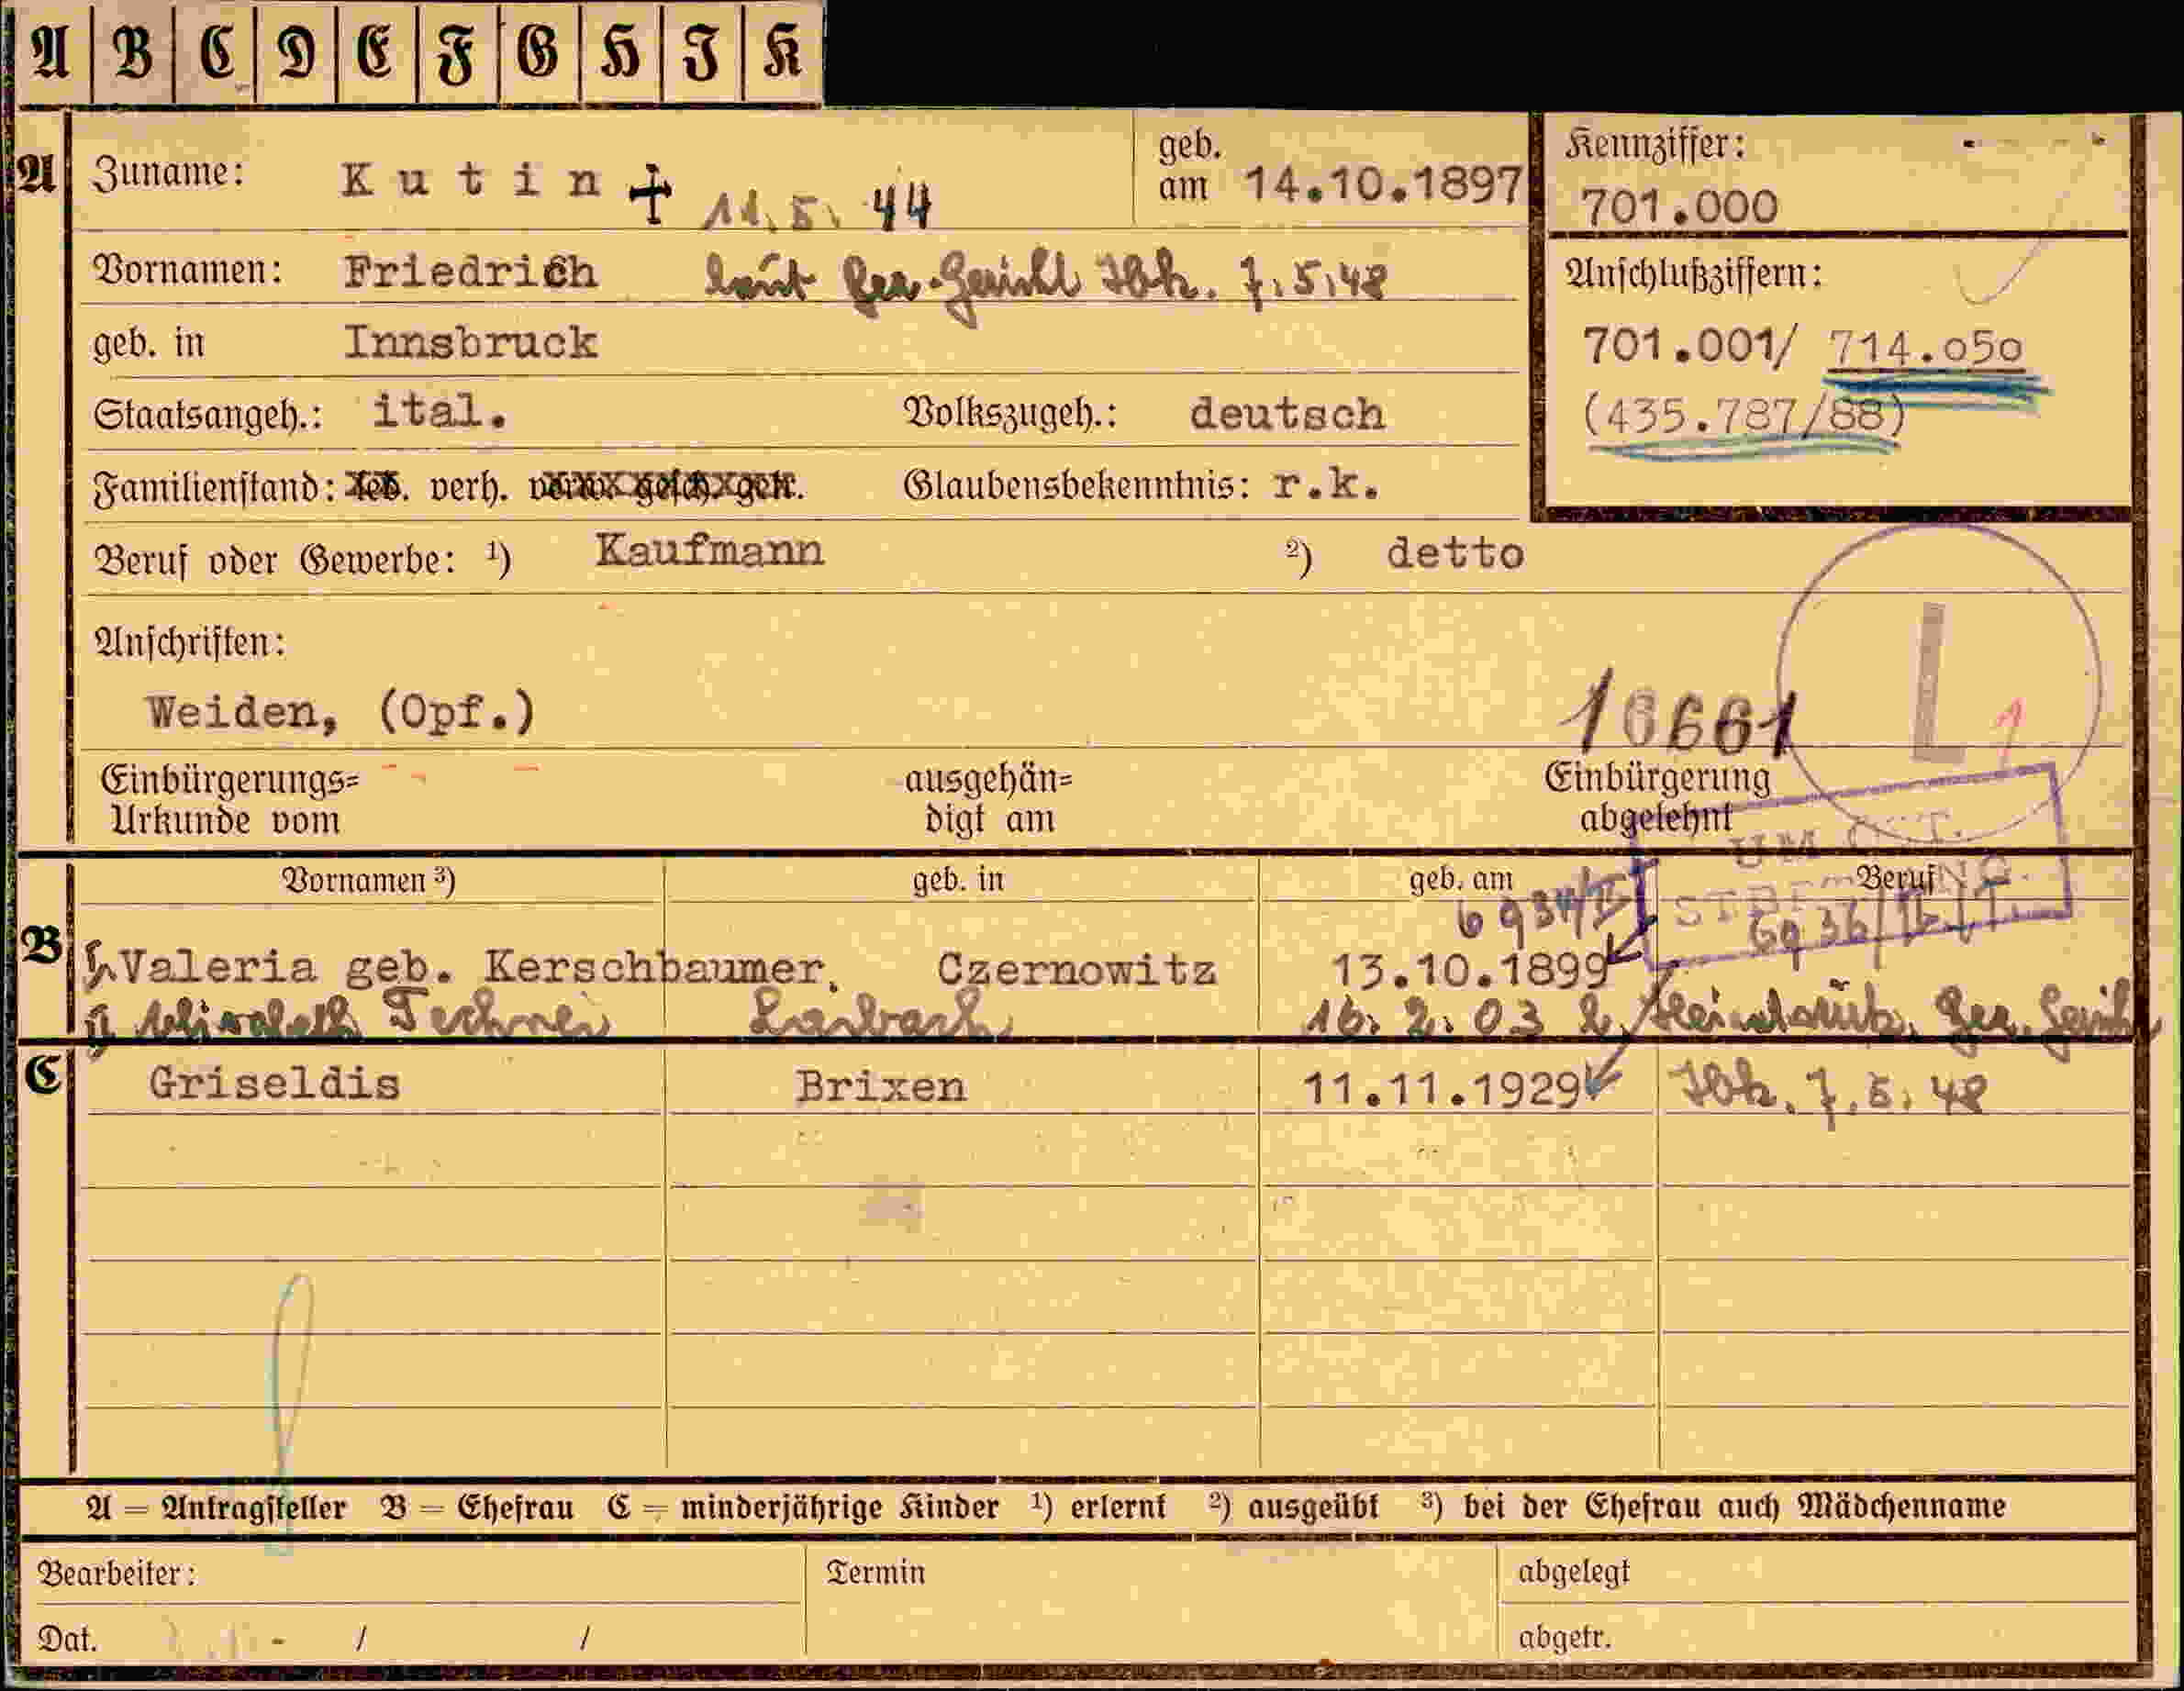 A B C D E F G H I K
A Zuname: Kutin + 11.5.44 geb. am 14.10.1897
Kennziffer: 701.000
Vornamen: Friedrich laut Bez.-Gericht Ibk. 7.5.48
Anschlußziffern:
geb. in Innsbruck
701.001/ 714.050
Staatsangeh.: ital. Volkszugeh.: deutsch
(435.787/88)
Familienstand: led. verh. verw. gesch. getr. Glaubensbekenntnis: r.k.
Beruf oder Gewerbe: ¹) Kaufmann ²) detto
Anschriften:
L
Weiden, (Opf.) 16661 1
Einbürgerungs=
Urkunde vom
ausgehän=
digt am
Einbürgerung
abgelehnt
B Vornamen ³) geb. in geb. am Beruf
6934/II 6936/
Valeria geb. Kerschbaumer, Czernowitz 13.10.1899
Laibach 16.2.03 Bez. Gericht
C Griseldis Brixen 11.11.1929 Ibk. 7.5.48
A = Antragsteller B = Ehefrau C = minderjährige Kinder ¹) erlernt ²) ausgeübt ³) bei der Ehefrau auch Mädchenname
Bearbeiter: Termin abgelegt
Dat. - / / abgetr.